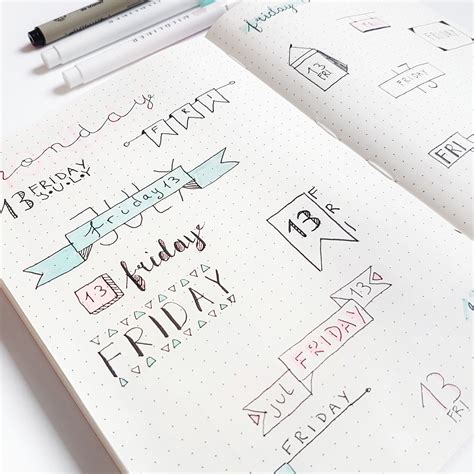 monday
F R I
13 FRIDAY
JULY
JULY
friday 13
13 friday
FRIDAY
13
FRI
JUL FRIDAY 13
FRIDAY
13
FRI
friday
13
FRI
FRIDAY
FRI